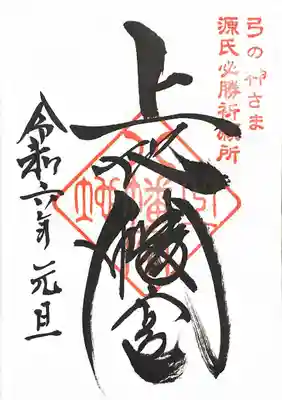 弓の神さま
源氏必勝祈願所
上地八幡宮
令和六年 元旦